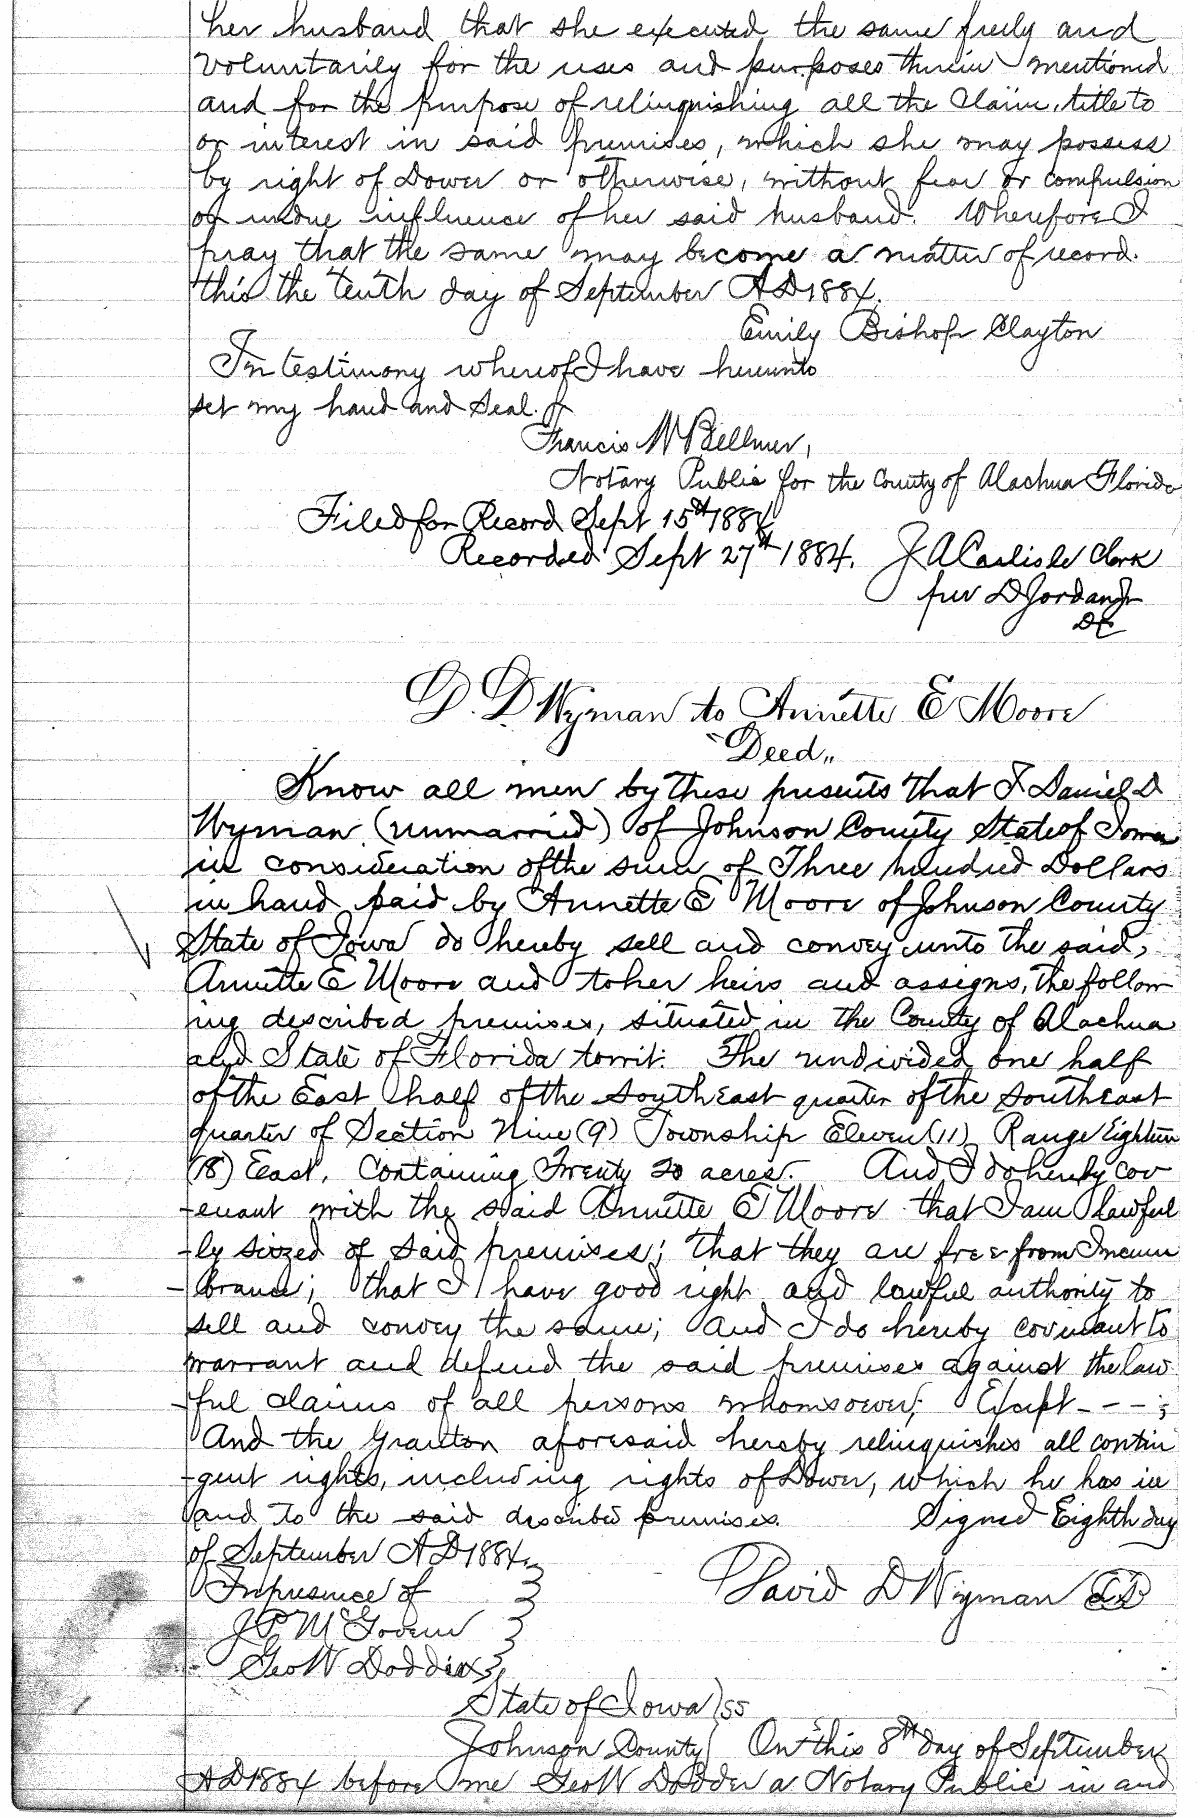 her husband that she executed the same freely and
voluntarily for the uses and purposes therein mentioned
and for the purpose of relinquishing all the Claim, title to
or interest in said premises, which she may possess
by right of Dower or otherwise, without fear or compulsion
or undue influence of her said husband. Wherefore I
pray that the same may become a matter of record.
this the tenth day of September AD 1884.
Emily Bishop Clayton
In testimony whereof I have hereunto
set my hand and Seal.
Francis W Bellmer,
Notary Public for the County of Alachua Florida
Filed for Record Sept 15th 1884
Recorded Sept 27th 1884. J A Carlisle Clerk
per D Jordan Jr
DC
D. D Wyman to Annette E Moore
"Deed"
Know all men by these presents that I Daniel D
Wyman (unmarried) of Johnson County State of Iowa
in consideration of the sum of Three hundred Dollars
in hand paid by Annette E Moore of Johnson County
State of Iowa do hereby sell and convey unto the said,
Annette E Moore and to her heirs and assigns, the follow
ing described premises, situated in the County of Alachua
and State of Florida towit: The undivided one half
of the East half of the South East quarter of the South East
quarter of Section Nine (9) Township Eleven (11) Range Eighteen
(18) East, Containing Twenty 20 acres. And I do hereby cov
-enant with the said Annette E Moore that I am lawful
-ly siezed of said premises; that they are free from Incum
-brance; that I have good right and lawful authority to
sell and convey the same; And I do hereby covenant to
warrant and defend the said premises against the law
-ful claims of all persons whomsoever; Except - - - ;
And the Grantor aforesaid hereby relinquishes all contin
-gent rights, including rights of Dower, which he has in
and to the said described premises. Signed Eighth day
of September AD 1884.
In presence of David D Wyman
J P McGovern
Geo W Dodder
State of Iowa ) ss
Johnson County ( On this 8th day of September
AD 1884 before me Geo W Dodder a Notary Public in and